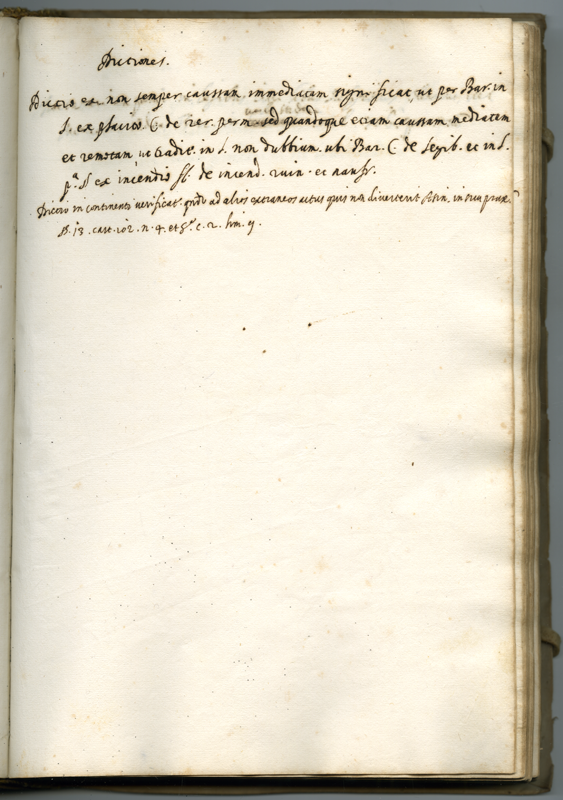 Dictiones.
Dictio ex non semper caussam immediatam significat, ut per Bar. in
l. ex plac̃ios. C. de rer. perm. sed quandoque etiam caussam mediatam
et remotam, ut tradit. in l. non dubbium. ubi Bar. C. de legib. et in l.
p.ª § ex incendio ff. de incend. ruin. et naufr.
Dictio in continenti verificat. qñdo ad alios extraneos actus quis non diverterit
§. 13. cart. 102. n. 4. et c. 2. lim. 9.